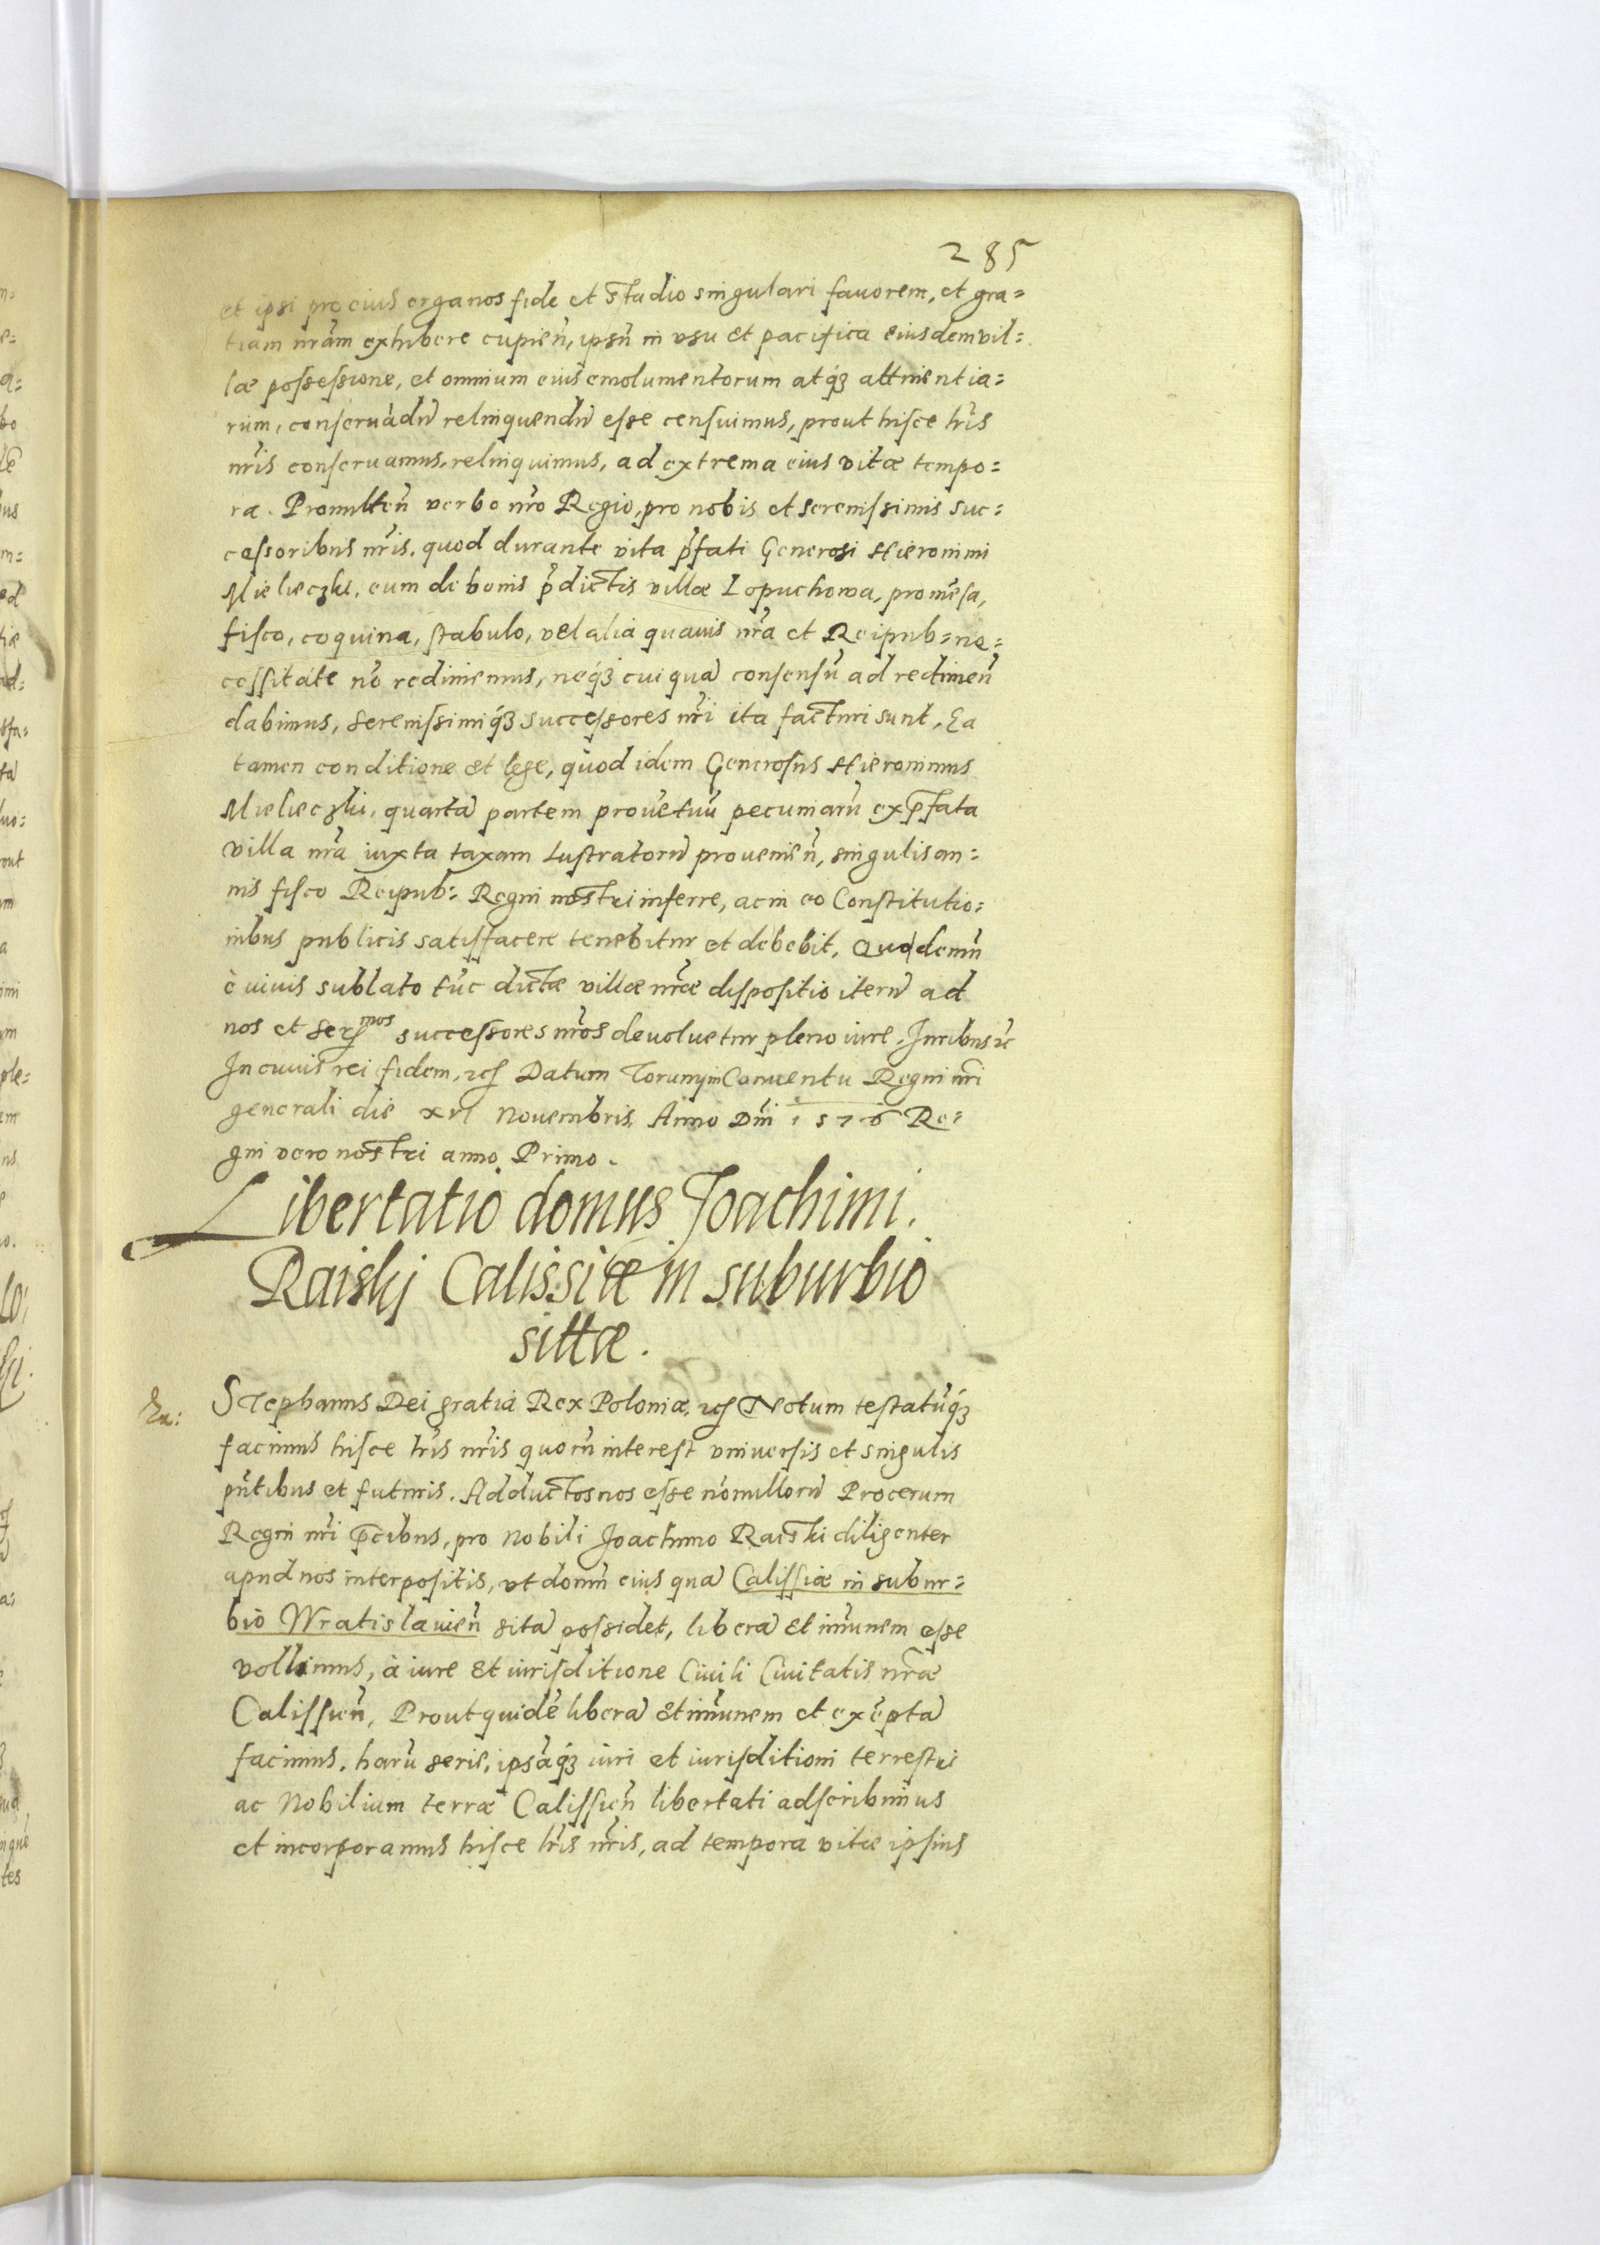 285
et ipsi pro eius erga nos fide et studio singulari fauorem, et gra=
tiam nr̃am exhibere cupieñ, ipsũ in vsu et pacifica eiusdem vil=
læ possessione, et omnium eius emolumentorum atq́ꝫ attinentia=
rum, conseruãdũ relinquendũ esse censuimus, prout hisce lr̃is
nr̃is conseruamus, relinquimus, ad extrema eius vitæ tempo=
ra. Promitteñ verbo nr̃o Regio, pro nobis et serenissimis suc=
cessoribus nr̃is, quod durante vita p̃fati Generosi Hieronimi
Mieleczki, eum de bonis p̃dictis villæ Lopuchowa, pro mẽsa,
fisco, coquina, stabulo, vel alia quauis nr̃a et Reipub=ne=
cessitate nõ redimemus, neq́ꝫ cuiquã consensũ ad redimeñ
dabimus, serenissimiq́ꝫ successores nr̃i ita facturi sunt, Ea
tamen conditione et lege, quod idem Generosus Hieronimus
Mieleczki, quartã partem prouẽtuũ pecuniarũ ex p̃fata
villa nr̃a iuxta taxam Lustratorũ prouenieñ, singulis an=
nis fisco Reipub: Regni nostri inferre, ac in eo Constitutio=
nibus publicis satisfacere tenebitur et debebit, Quo demũ
è viuis sublato tũc dictæ villæ nr̃æ dispositio iterũ ad
nos et Ser^mos successores nr̃os deuoluetur pleno iure. Juribus ꝛc
In cuius rei fidem, ꝛc Datum Toruny in Conuentu Regni nr̃i
generali die XVI Nouembris Anno Dñi 1576 Re=
gni vero nostri anno Primo.
Libertatio domus Joachimi.
Raiskj Calissiæ in suburbio
sittæ.
Stephanus Dei gratia Rex Poloniæ, ꝛc Notum testatũq́ꝫ
facimus hisce lr̃is nr̃is quorũ interest vniuersis et singulis
pñtibus et futuris. Adductos nos esse nõnullorũ Procerum
Regni nr̃i p̃cibus, pro Nobili Joachimo Raiski diligenter
apud nos interpositis, vt domũ eius quã Calissiæ in subur=
bio Wratislauieñ sitã possidet, liberã et im̃unem esse
vellimus, à iure et iurisditione Ciuili Ciuitatis nr̃æ
Calissieñ, Prout quidẽ liberã et im̃unem et exẽptã
facimus, harũ serie, ipsãq́ꝫ iuri et iurisditioni terrestri
ac Nobilium terræ Calissieñ libertati adscribimus
et incorporamus hisce lr̃is nr̃is, ad tempora vitæ ipsius